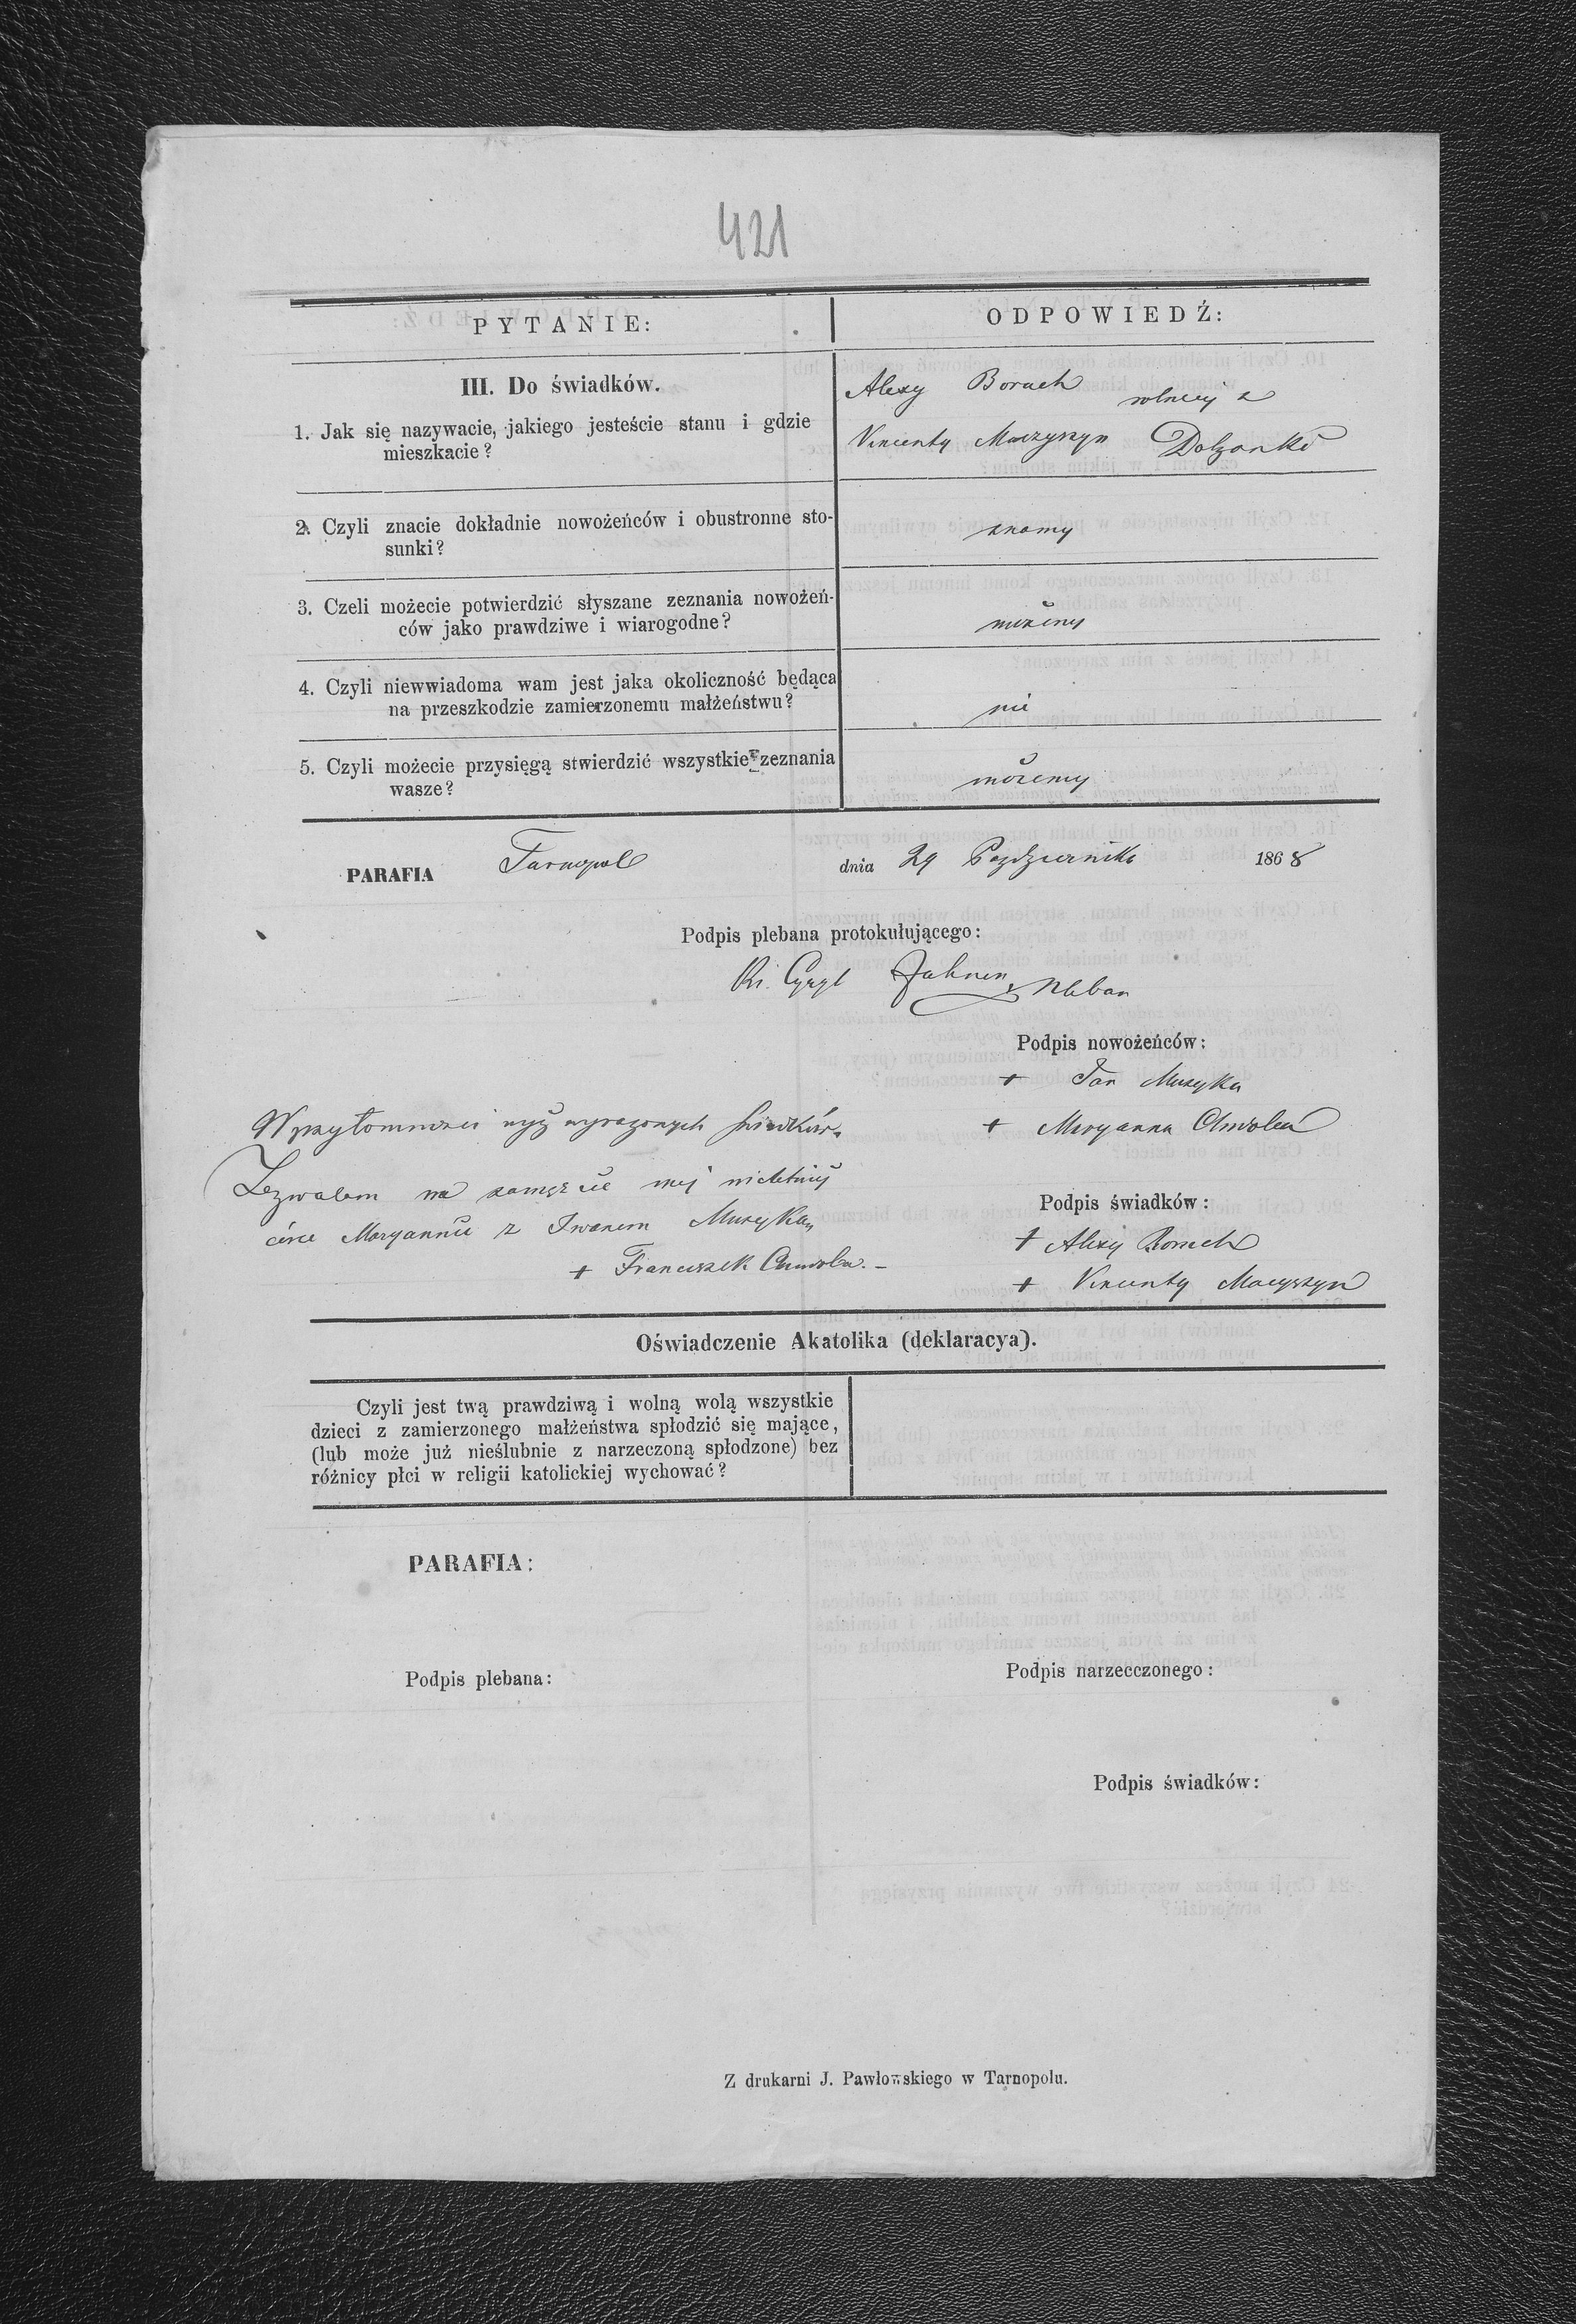 421
PYTANIE:
ODPOWIEDŹ:
III. Do świadków.
1. Jak się nazywacie, jakiego jesteście stanu i gdzie
mieszkacie?
Alexy Boruch rolnicy z
Vincenty Maczyszyn Dolzanki
2. Czyli znacie dokładnie nowożeńców i obustronne sto-
sunki?
znamy
3. Czeli możecie potwierdzić słyszane zeznania nowożeń-
ców jako prawdziwe i wiarogodne?
możemy
4. Czyli niewwiadoma wam jest jaka okoliczność będąca
na przeszkodzie zamierzonemu małżeństwu?
nie
5. Czyli możecie przysięgą stwierdzić wszystkie zeznania
wasze?
możemy
PARAFIA Tarnopol dnia 29 Pazdziernika 1868
Podpis plebana protokułującego:
Pleban
Podpis nowożeńców:
+ Jan Muzyka
+ Maryanna Chwola
W przytomnosci wyż wyrazonych swiadków
Zezwalam na zamęzcie mej nieletniej
córce Maryannie z Iwanem Muzyka
+ Franciszek Chwola. –
Podpis świadków:
+ Alexy Boruch
+ Vincenty Maczyszyn
Oświadczenie Akatolika (deklaracya).
Czyli jest twą prawdziwą i wolną wolą wszystkie
dzieci z zamierzonego małżeństwa spłodzić się mające,
(lub może już nieślubnie z narzeczoną spłodzone) bez
różnicy płci w religii katolickiej wychować?
PARAFIA:
Podpis plebana:
Podpis narzecczonego:
Podpis świadków:
Z drukarni J. Pawłowskiego w Tarnopolu.